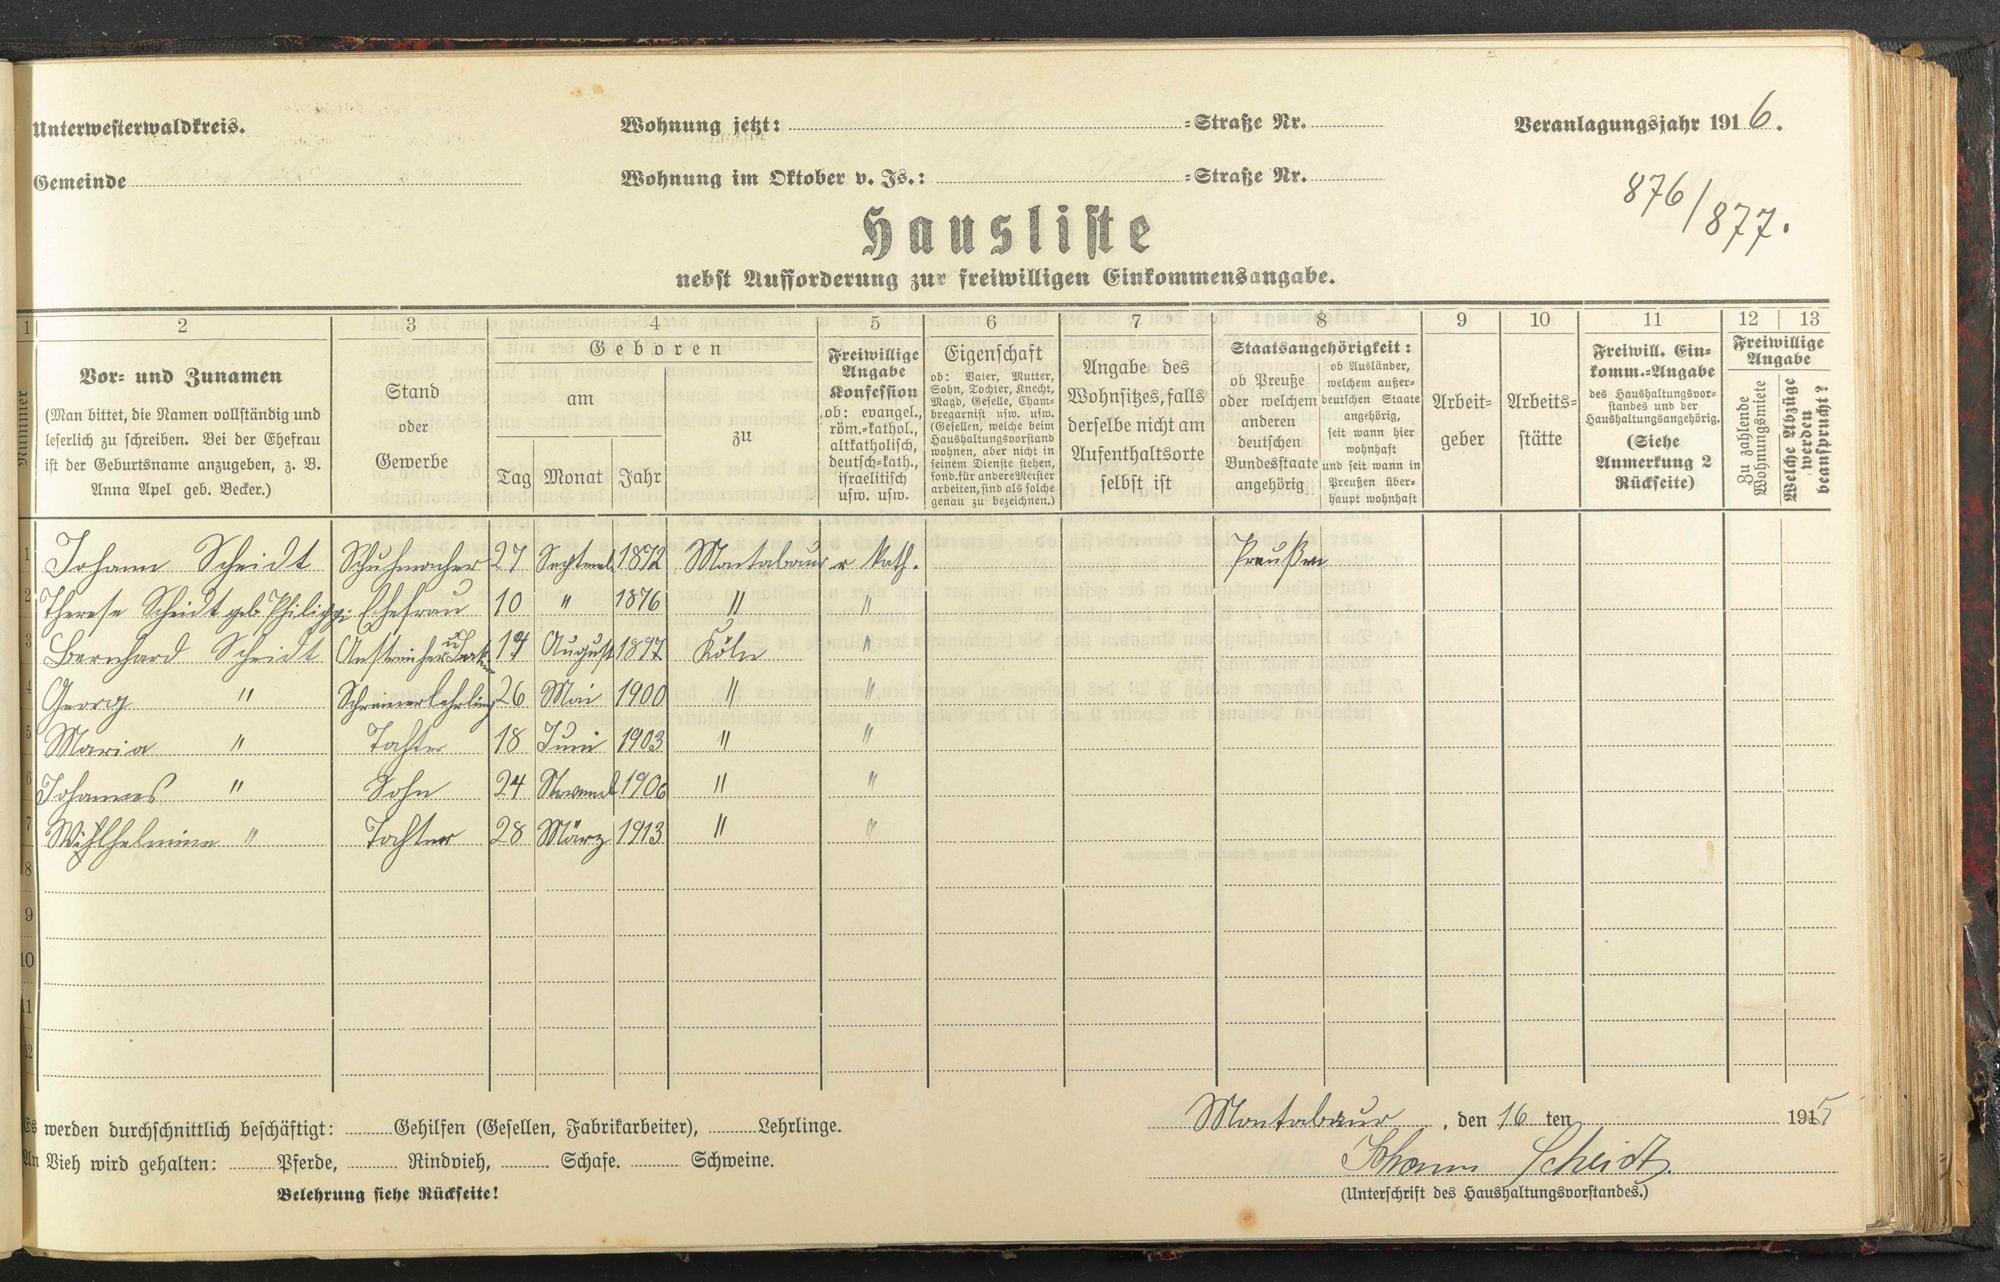 Unterwesterwaldkreis.
Wohnung jetzt: =Straße Nr.
Veranlagungsjahr 1916.
Gemeinde
Wohnung im Oktober v. Js.: =Straße Nr.
876/877.
Hausliste
nebst Aufforderung zur freiwilligen Einkommensangabe.
1 2 3 4 5 6 7 8 9 10 11 12 13
Nummer
Vor- und Zunamen
(Man bittet, die Namen vollständig und
leserlich zu schreiben. Bei der Ehefrau
ist der Geburtsname anzugeben, z. B.
Anna Apel geb. Becker.)
Stand
oder
Gewerbe
Geboren
am
Tag Monat Jahr
zu
Freiwillige
Angabe
Konfession
ob: evangel.,
röm.=kathol.,
altkatholisch,
deutsch=kath.,
israelitisch
usw. usw.
Eigenschaft
ob: Vater, Mutter,
Sohn, Tochter, Knecht,
Magd, Geselle, Cham-
bregarnist usw. usw.
(Gesellen, welche beim
Haushaltungsvorstand
wohnen, aber nicht in
seinem Dienste stehen,
sond. für andere Meister
arbeiten, sind als solche
genau zu bezeichnen.)
Angabe des
Wohnsitzes, falls
derselbe nicht am
Aufenthaltsorte
selbst ist
Staatsangehörigkeit:
ob Preuße
oder welchem
anderen
deutschen
Bundesstaate
angehörig
ob Ausländer,
welchem außer-
deutschen Staate
angehörig,
seit wann hier
wohnhaft
und seit wann in
Preußen über-
haupt wohnhaft
Arbeit-
geber
Arbeits-
stätte
Freiwill. Ein-
komm.=Angabe
des Haushaltungsvor-
standes und der
Haushaltungsangehörig.
(Siehe
Anmerkung 2
Rückseite)
Freiwillige
Angabe
Zu zahlende
Wohnungsmiete
Welche Abzüge
werden
beansprucht?
1 Johann Scheidt Schuhmacher 27 Septemb. 1872 Montabaur r. kath. Preußen
2 Therese Scheidt geb. Philippi Ehefrau 10 " 1876 " "
3 Bernhard Scheidt Anstreicher u. 17 August 1897 Köln "
4 Georg " Schreinerlehrling 26 Mai 1900 " "
5 Maria " Tochter 18 Juni 1903 " "
6 Johannes " Sohn 24 Novemb 1906 " "
7 Wilhelmine " Tochter 28 März 1913 " "
8
9
10
11
12
Es werden durchschnittlich beschäftigt: Gehilfen (Gesellen, Fabrikarbeiter), Lehrlinge.
An Vieh wird gehalten: Pferde, Rindvieh, Schafe. Schweine.
Belehrung siehe Rückseite!
Montabaur, den 16 ten 1915
Johann Scheidt.
(Unterschrift des Haushaltungsvorstandes.)